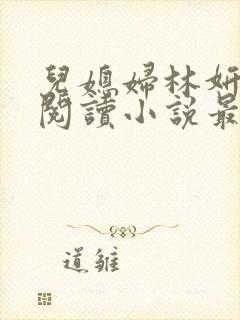 兒媳婦林妍
閱讀小說最
道雛